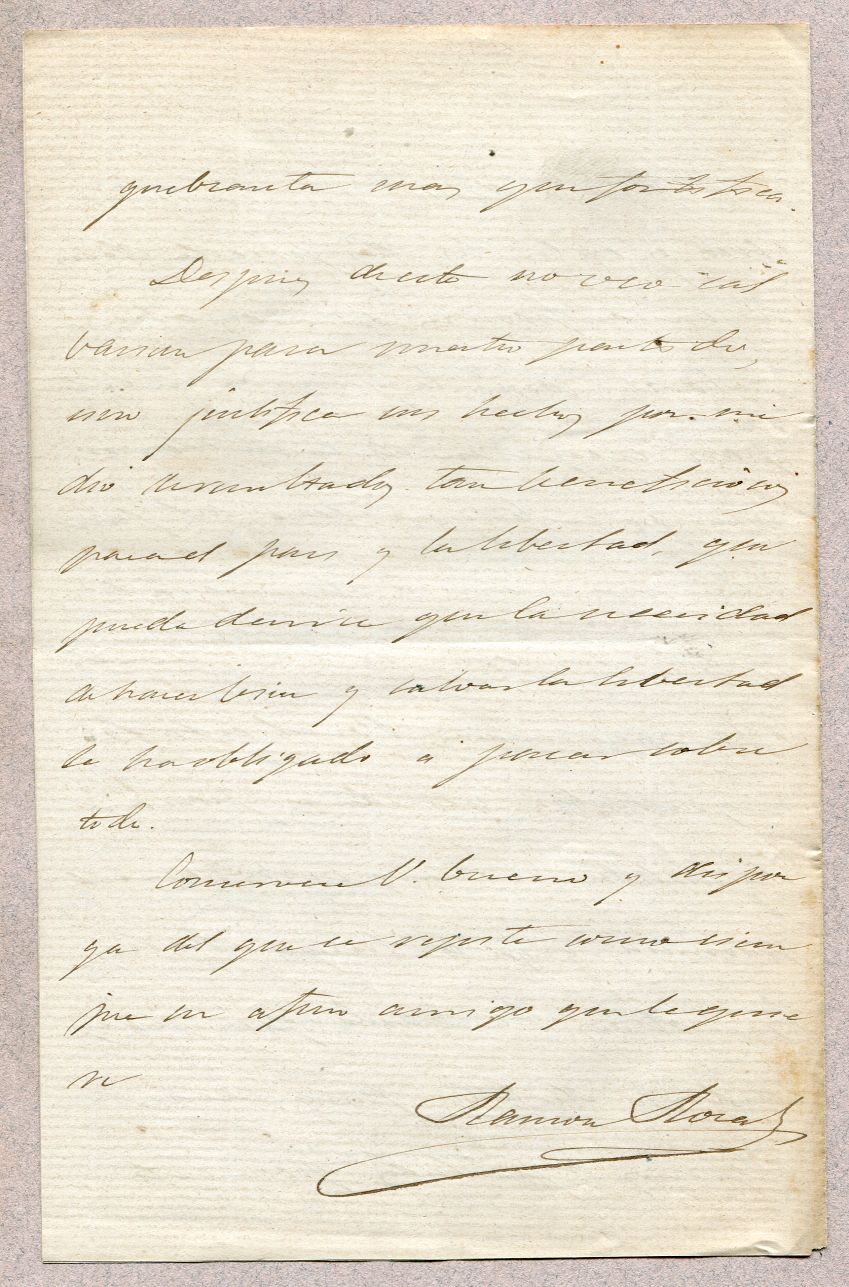 quebranta mas que fortifica.
Despues de esto no veo sal
vacion para nuestro partido,
sino justifica sus hechos por me
dio de resultados tan beneficiosos
para el pais y la libertad, que
pueda decirse que la necesidad
de hacer bien y salvar la libertad
le ha obligado a pasar sobre
todo.
Conservese V. bueno y dispon
ga del que se repite como siem
pre su afmo amigo que le quie
re
Ramon